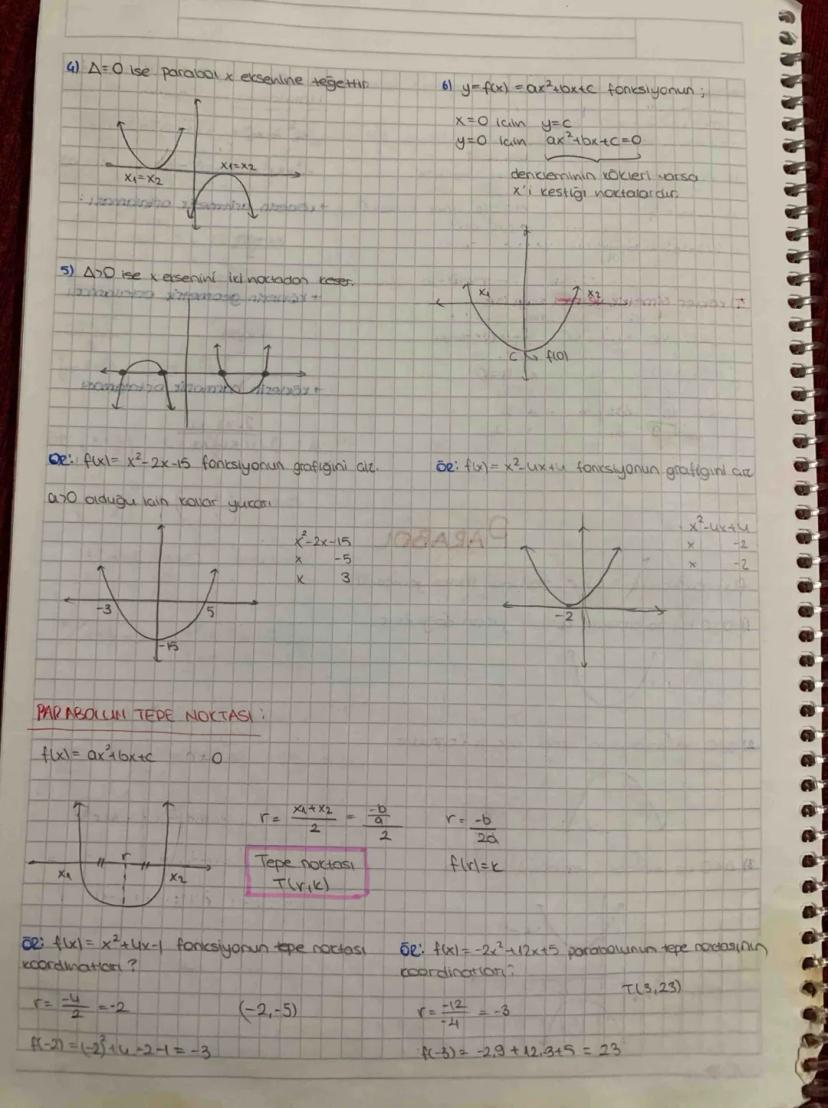 4) Δ=0 ise parabol x eksenine teğettir.
x₁=x₂
x₁=x₂
5) Δ>0 ise x eksenini iki noktadan keser.
6) y=f(x)=ax²+bx+c fonksiyonun;
x=0 için y=c
y=0 için ax²+bx+c=0
denkleminin kökleri varsa
x'i kestiği noktalardır.
x₁
x₂
C
f(0)
Ör: f(x)= x²-2x-15 fonksiyonun grafiğini çiz.
a>0 olduğu için kollar yukarı
x²-2x-15
x -5
x 3
-3
5
-15
Ör: f(x)=x²-4x+4 fonksiyonun grafiğini çiz
x²-4x+4
x -2
x -2
-2
PARABOLUN TEPE NOKTASI:
f(x)= ax²+bx+c =0
r
x₁
x₂
r= x₁+x₂/2 = -b/a/2
r= -b/2a
Tepe noktası
T(r,k)
f(r)=k
Ör: f(x)= x²+4x-1 fonksiyonun tepe noktası
koordinatları?
r= -4/2 =-2
(-2,-5)
f(-2)=(-2)²+4.-2-1=-3
Ör: f(x)=-2x²+12x+5 parabolunun tepe noktasının
koordinatları?
T(3,23)
r= -12/-4 = -3
f(-3)= -2.9+12.3+5 = 23